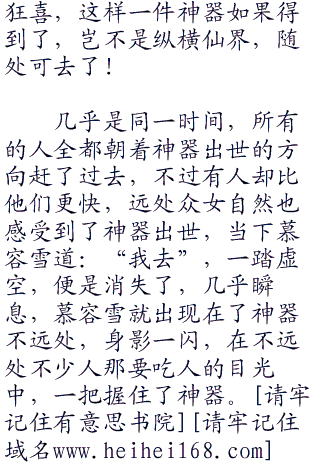 狂喜，这样一件神器如果得
到了，岂不是纵横仙界，随
处可去了！
几乎是同一时间，所有
的人全都朝着神器出世的方
向赶了过去，不过有人却比
他们更快，远处众女自然也
感受到了神器出世，当下慕
容雪道：“我去”，一踏虚
空，便是消失了，几乎瞬
息，慕容雪就出现在了神器
不远处，身影一闪，在不远
处不少人那要吃人的目光
中，一把握住了神器。[请牢
记住有意思书院][请牢记住
域名www.heihei168.com]